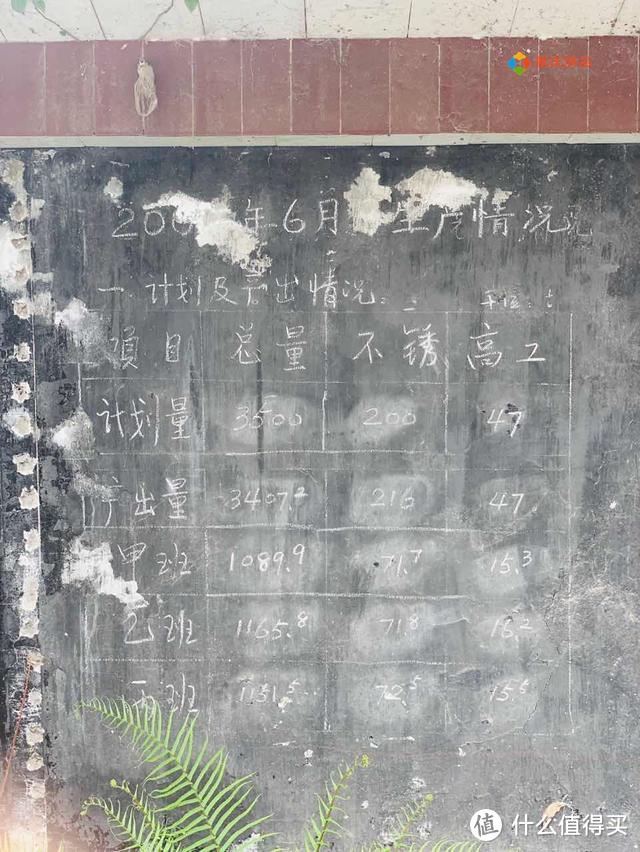 200 年6月 生产情况
一.计划及产出情况: 单位:t
項目 总量 不锈 高工
计划量 3500 200 47
产出量 3407.2 216 47
甲班 1089.9 71.7 15.3
乙班 1165.8 71.8 16.2
丙班 1151.5 72.5 15.5
值 什么值得买